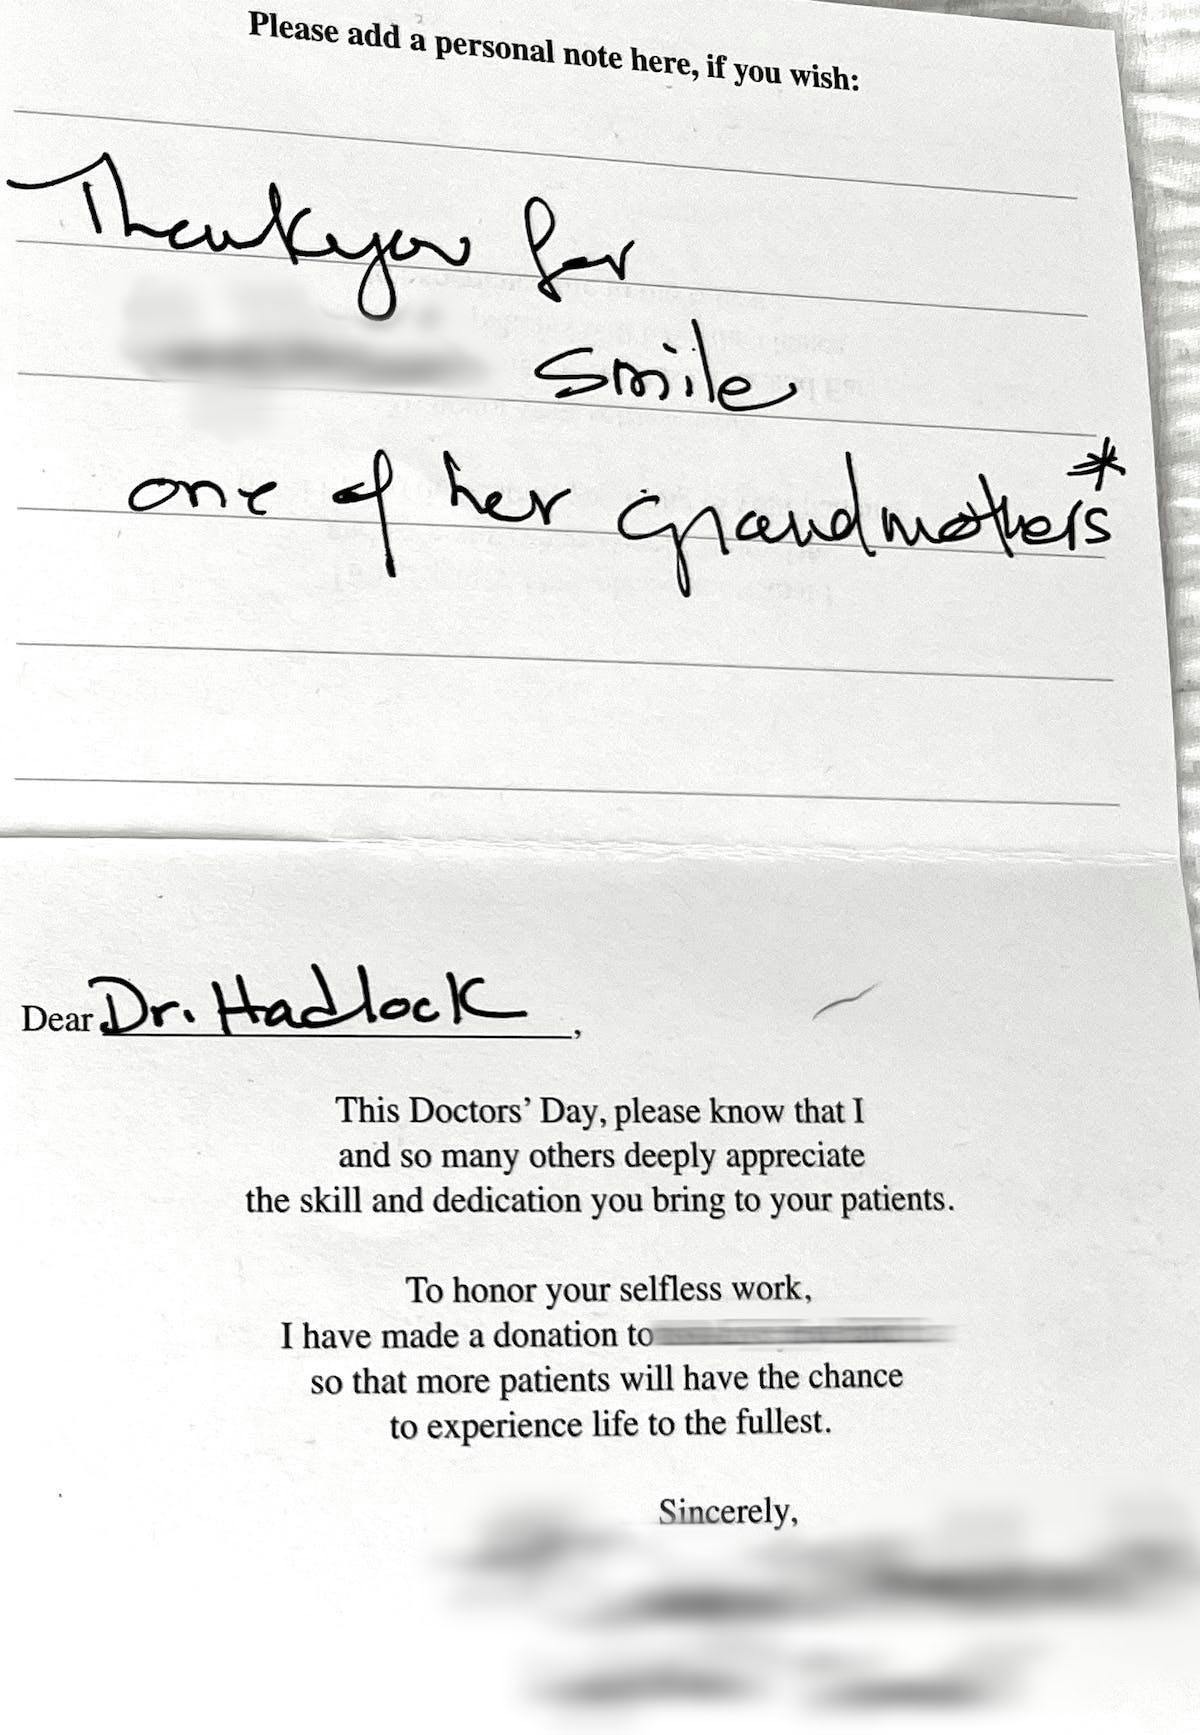 Please add a personal note here, if you wish:
Thankyou for
smile
one of her grandmothers*
Dear Dr. Hadlock,
This Doctors’ Day, please know that I
and so many others deeply appreciate
the skill and dedication you bring to your patients.
To honor your selfless work,
I have made a donation to
so that more patients will have the chance
to experience life to the fullest.
Sincerely,